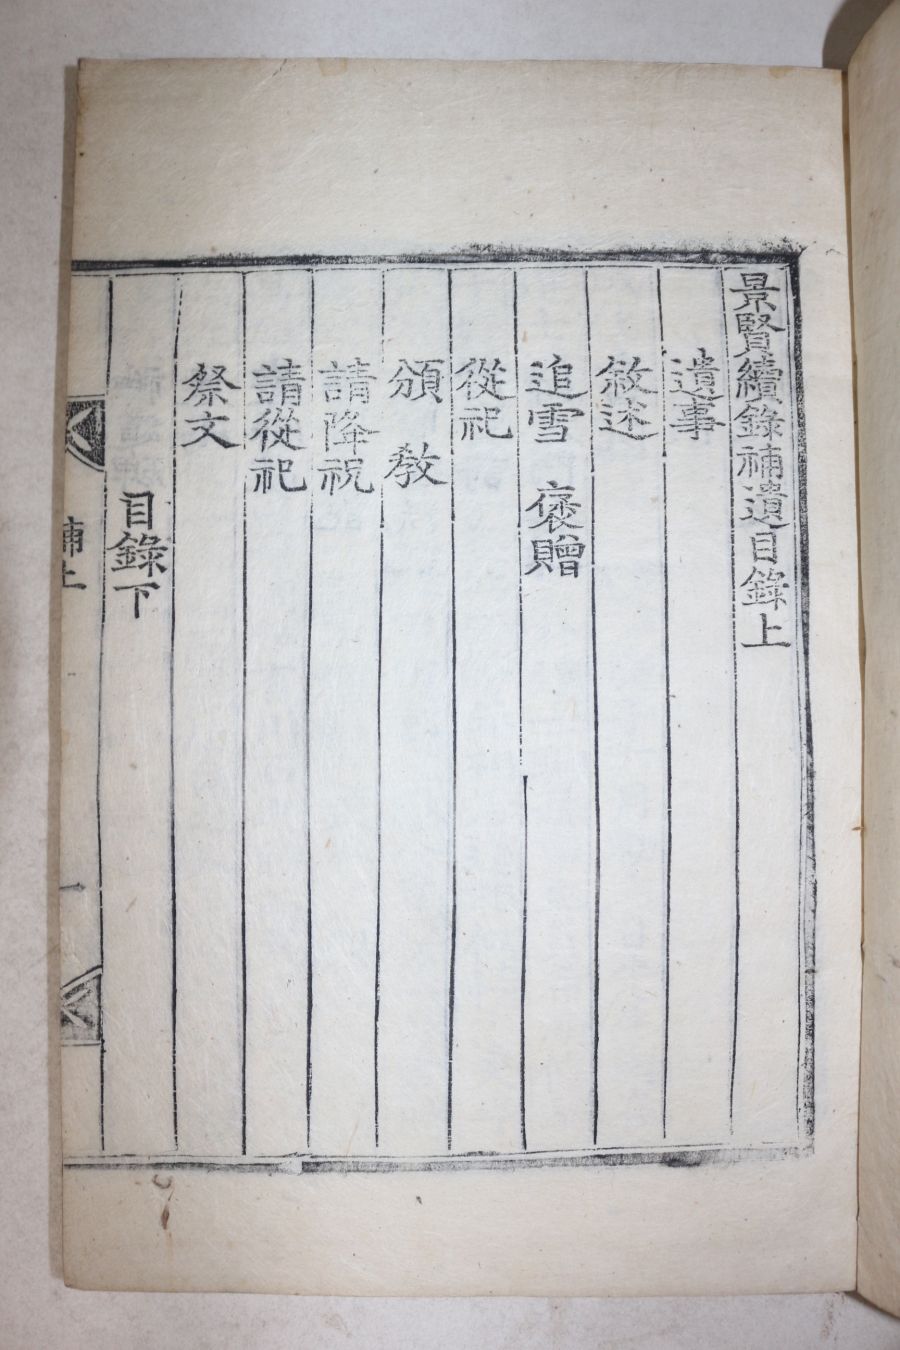 景賢續錄補遺目錄上
遺事
敘述
追雪 褒贈
從祀
頒 教
請降祝
請從祀
祭文
目錄下
補上
一